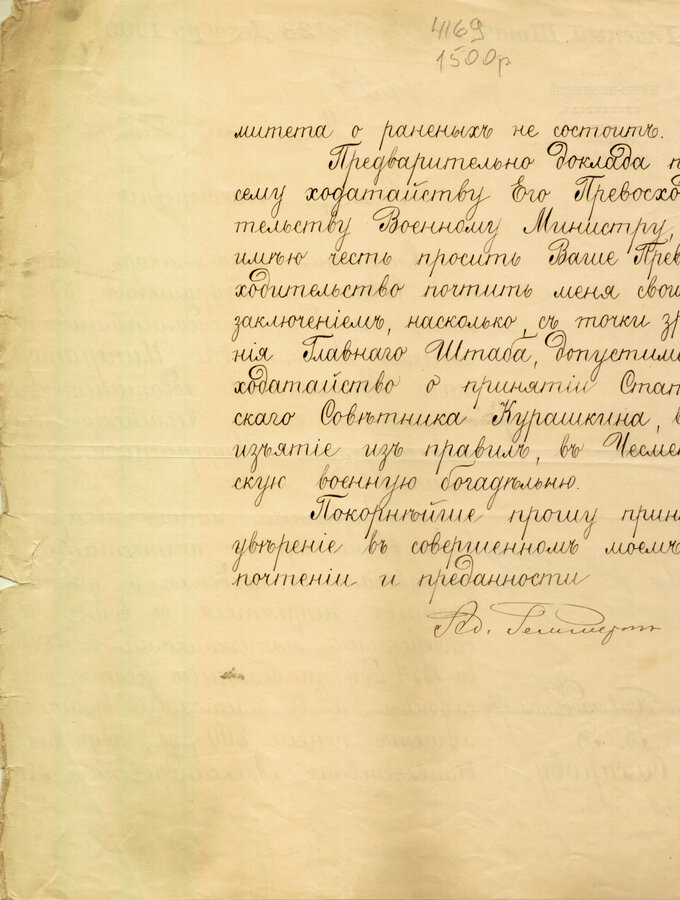 4169
1500р
митета о раненыхъ не состоитъ.
Предварительно доклада п
сему ходатайству Его Превосхо
тельству Военному Министру,
имѣю честь просить Ваше Прев
ходительство почтить меня свои
заключеніемъ, насколько, съ точки зр
нія Главнаго Штаба, допустимо
ходатайство о принятіи Стат
скаго Совѣтника Курашкина, в
изъятіе изъ правилъ, въ Чесмен
скую военную богадѣльню.
Покорнѣйше прошу прин
увѣреніе въ совершенномъ моемъ
почтеніи и преданности
Ад.